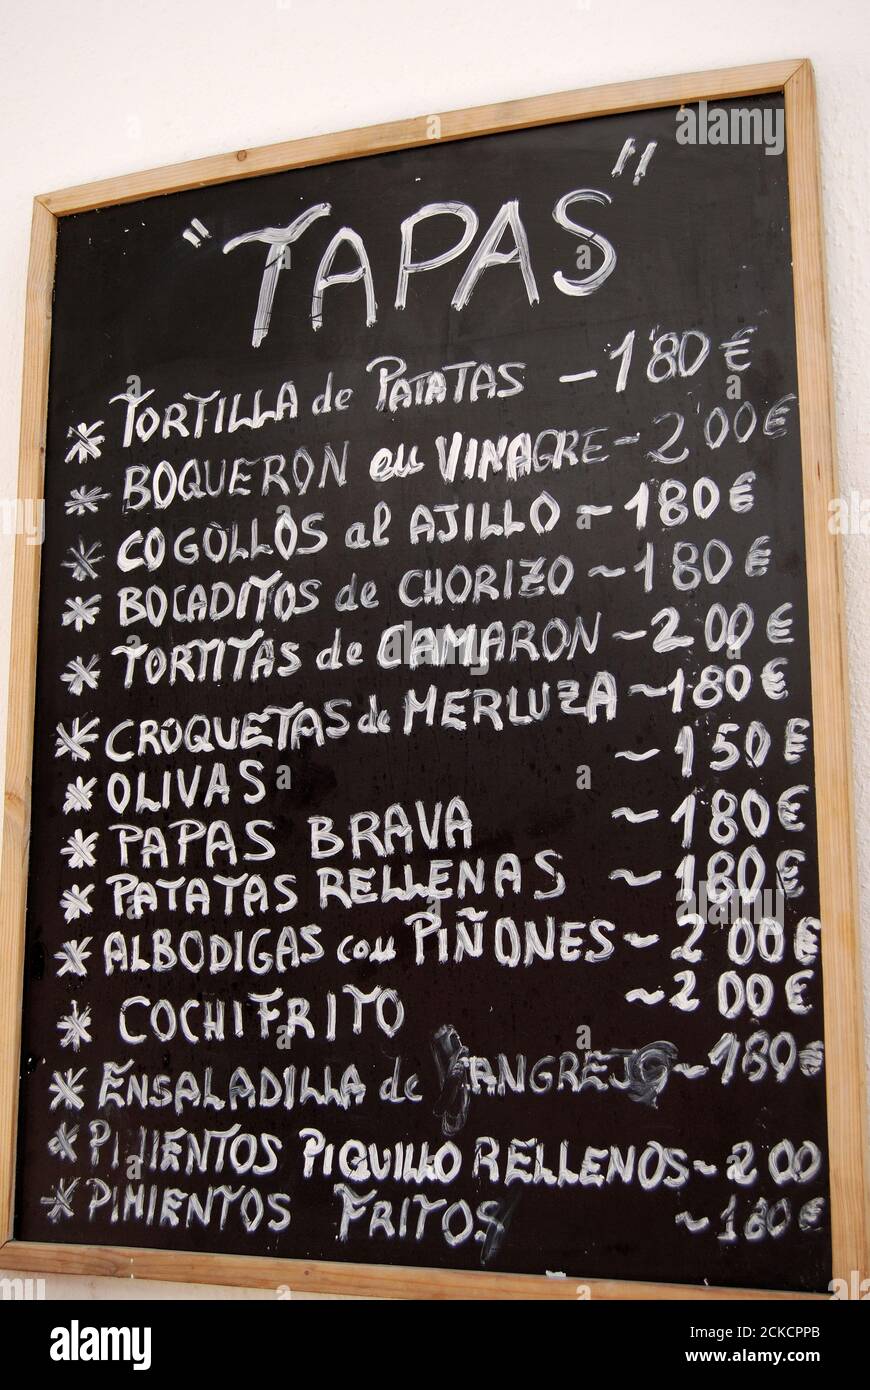 "TAPAS"
* TORTILLA de PATATAS - 1'80 €
* BOQUERON en VINAGRE - 2'00 €
* COGOLLOS al AJILLO ~ 180 €
* BOCADITOS de CHORIZO ~ 180 €
* TORTITAS de CAMARON ~ 2'00 €
* CROQUETAS de MERLUZA ~ 180 €
* OLIVAS ~ 150 €
* PAPAS BRAVA ~ 180 €
* PATATAS RELLENAS ~ 180 €
* ALBODIGAS con PIÑONES ~ 2 00 €
* COCHIFRITO ~ 2 00 €
* ENSALADILLA de CANGREJO ~ 180 €
* PIMIENTOS PIQUILLO RELLENOS ~ 2 00
* PIMIENTOS FRITOS ~ 180 €
alamy
Image ID: 2CKCPPB
www.alamy.com